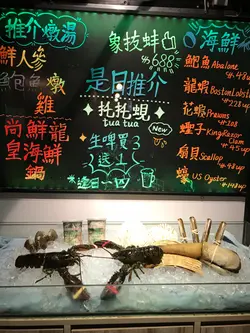 推介燉湯
鮮人參
魚包魚燉
雞
尚鮮龍
皇海鮮
鍋
象拔蚌
$688
是日推介
托托蜆
tua tua
New
生啤買3
送1
逢日一四
海鮮
鮑魚 Abalone
龍蝦 Boston Lobster
花蝦 Prawns
蟶子 King Razor Clam
扇貝 Scallop
蠔 US Oyster